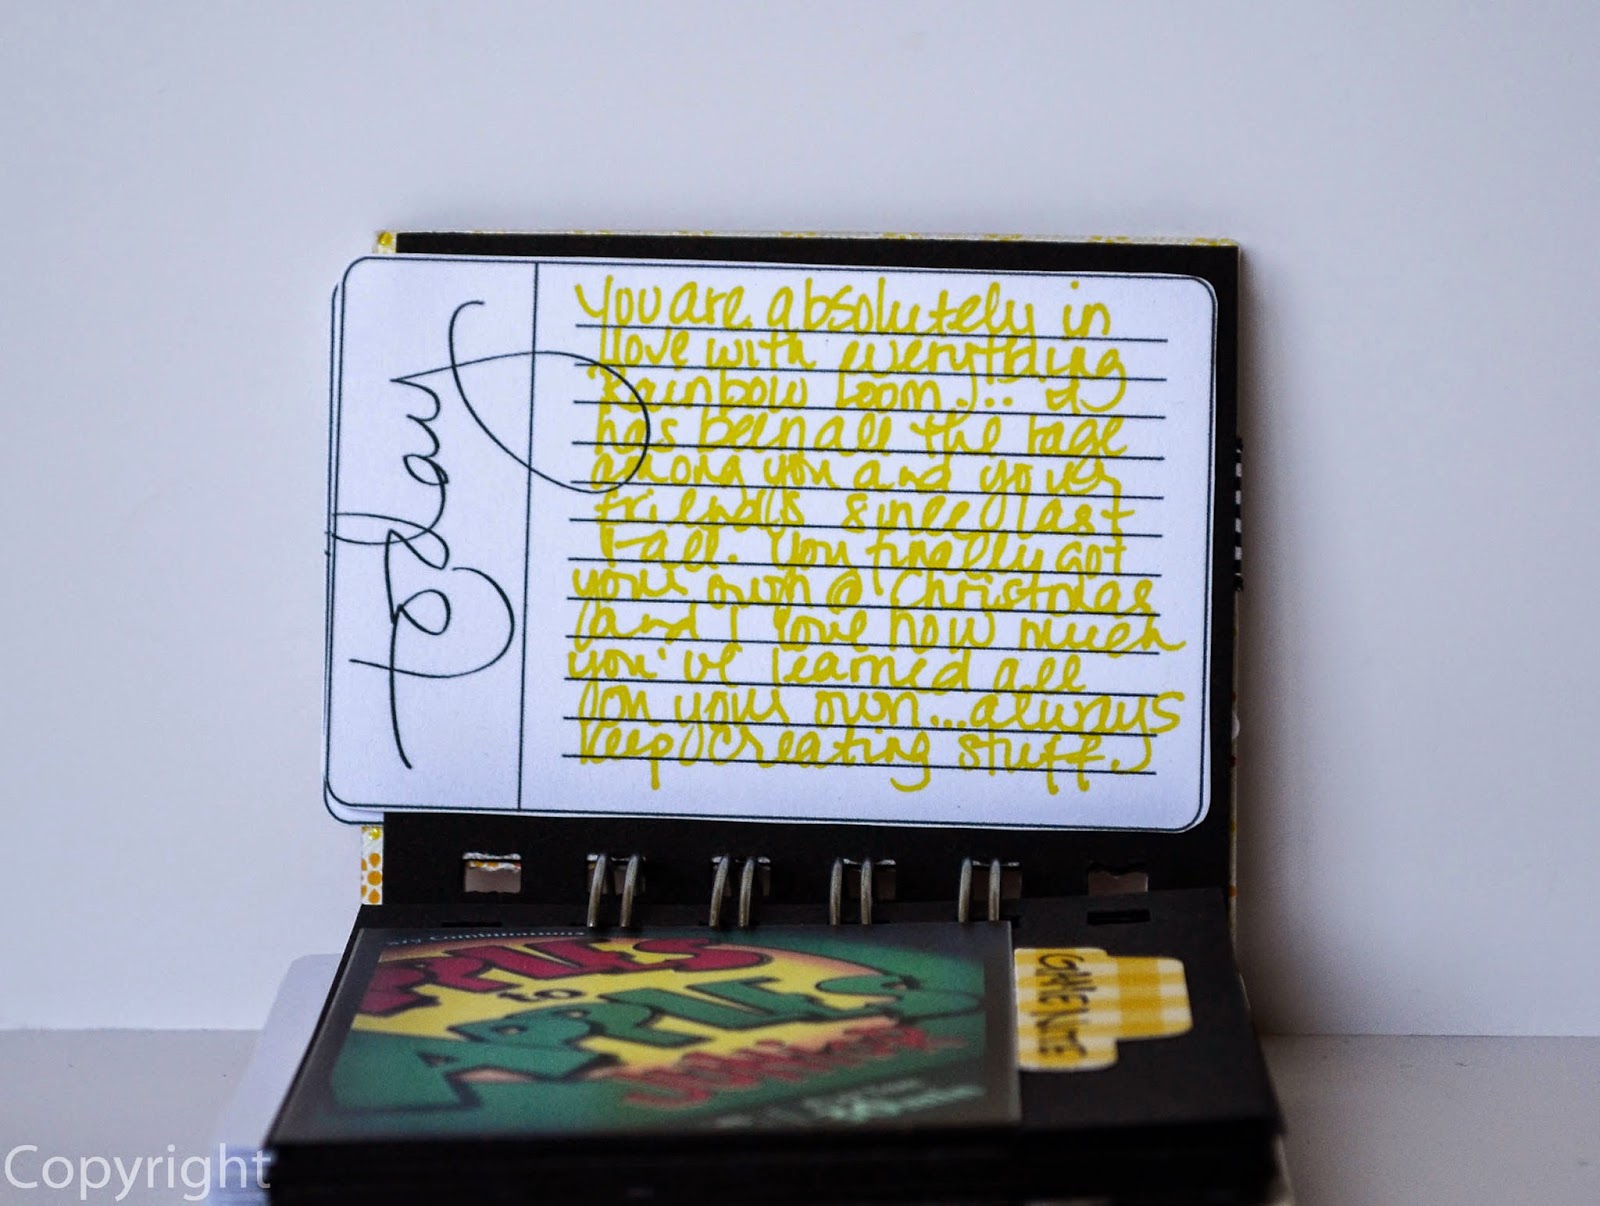 today
You are absolutely in
love with everything
Rainbow Loom :). It
has been all the rage
among you and your
friends since last
Fall. You finally got
your own @ Christmas
and I love how much
you've learned all
on your own...always
keep creating stuff :)
APPLES
to
APPLES
Junior
GAME NITE
Copyright